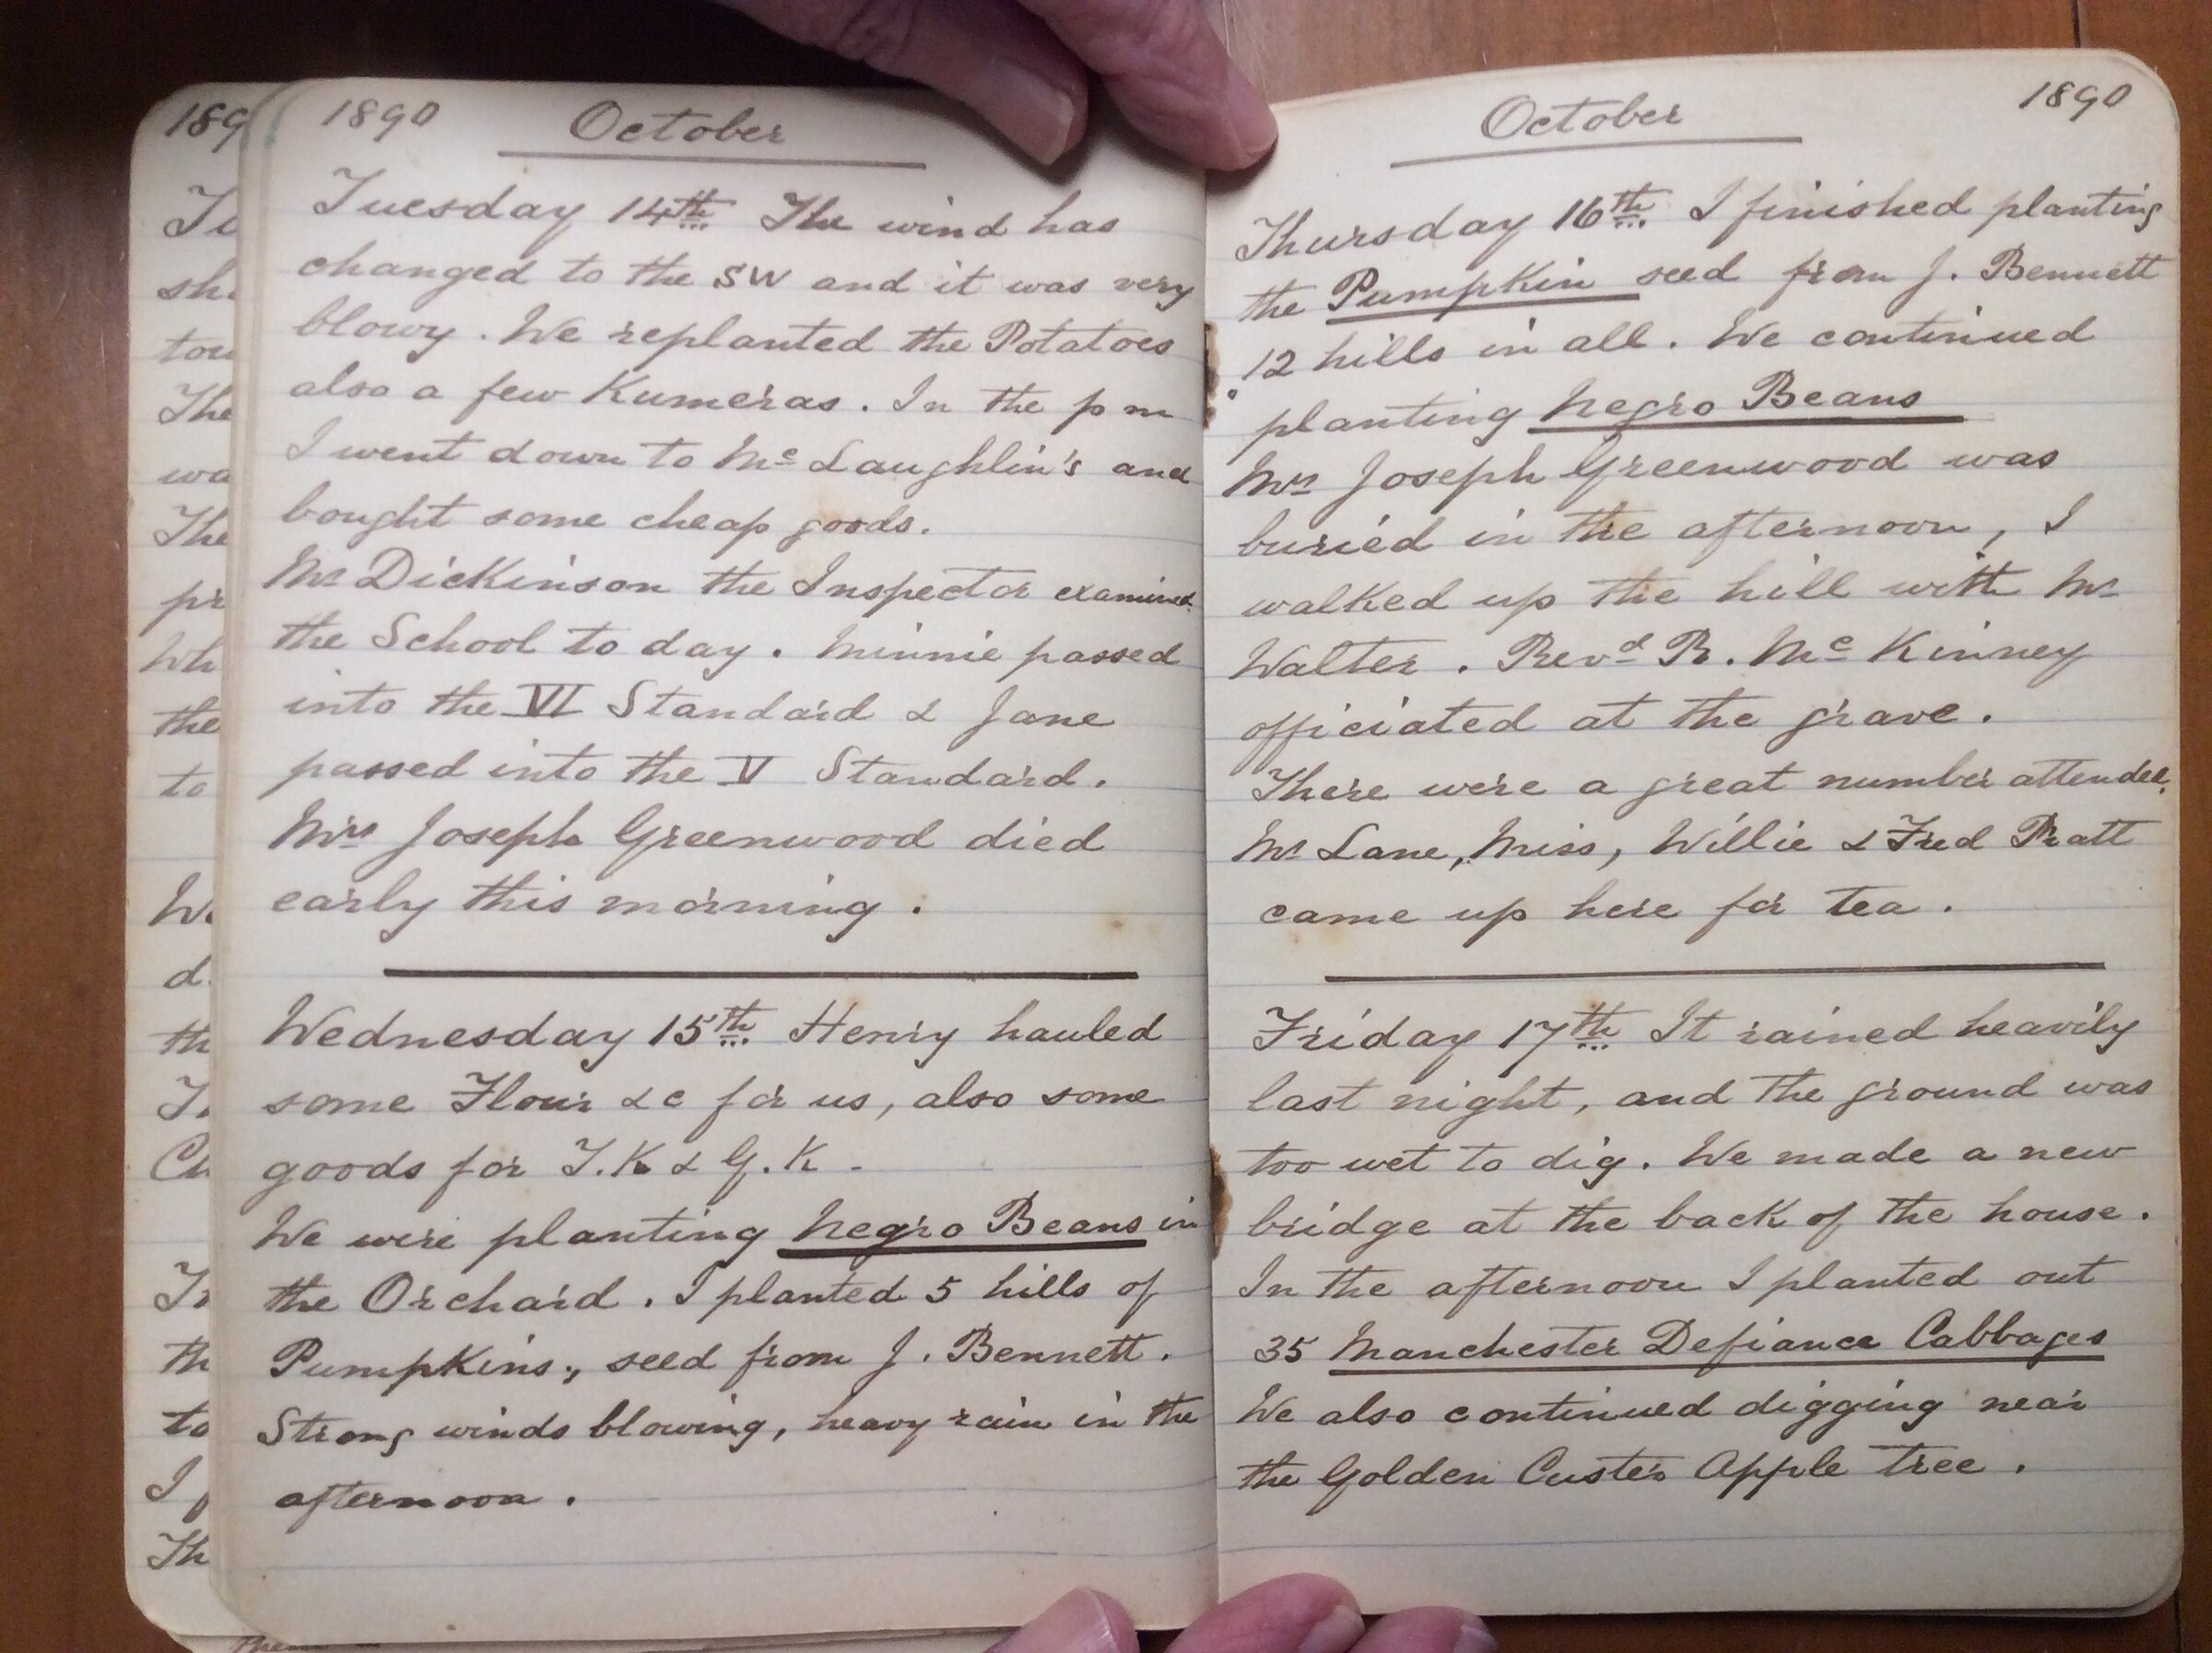 1890 October
Tuesday 14th The wind has
changed to the SW and it was very
blowy. We replanted the Potatoes
also a few Kumeras. In the p m
I went down to Mc Laughlin's and
bought some cheap goods.
Mr Dickinson the Inspector examined
the School to day. Minnie passed
into the VI Standard & Jane
passed into the V Standard.
Mrs Joseph Greenwood died
early this morning.
Wednesday 15th Henry hauled
some Flour &c for us, also some
goods for T.K & G.K.
We were planting Negro Beans in
the Orchard. I planted 5 hills of
Pumpkins, seed from J. Bennett.
Strong winds blowing, heavy rain in the
afternoon.
October 1890
Thursday 16th I finished planting
the Pumpkin seed from J. Bennett
12 hills in all. We continued
planting Negro Beans
Mrs Joseph Greenwood was
buried in the afternoon, I
walked up the hill with Mr
Walter. Revd R. Mc Kinney
officiated at the grave.
There were a great number attended.
Mr Lane, Miss, Willie & Fred Pratt
came up here for tea.
Friday 17th It rained heavily
last night, and the ground was
too wet to dig. We made a new
bridge at the back of the house.
In the afternoon I planted out
35 Manchester Defiance Cabbages
We also continued digging near
the Golden Custer Apple tree.